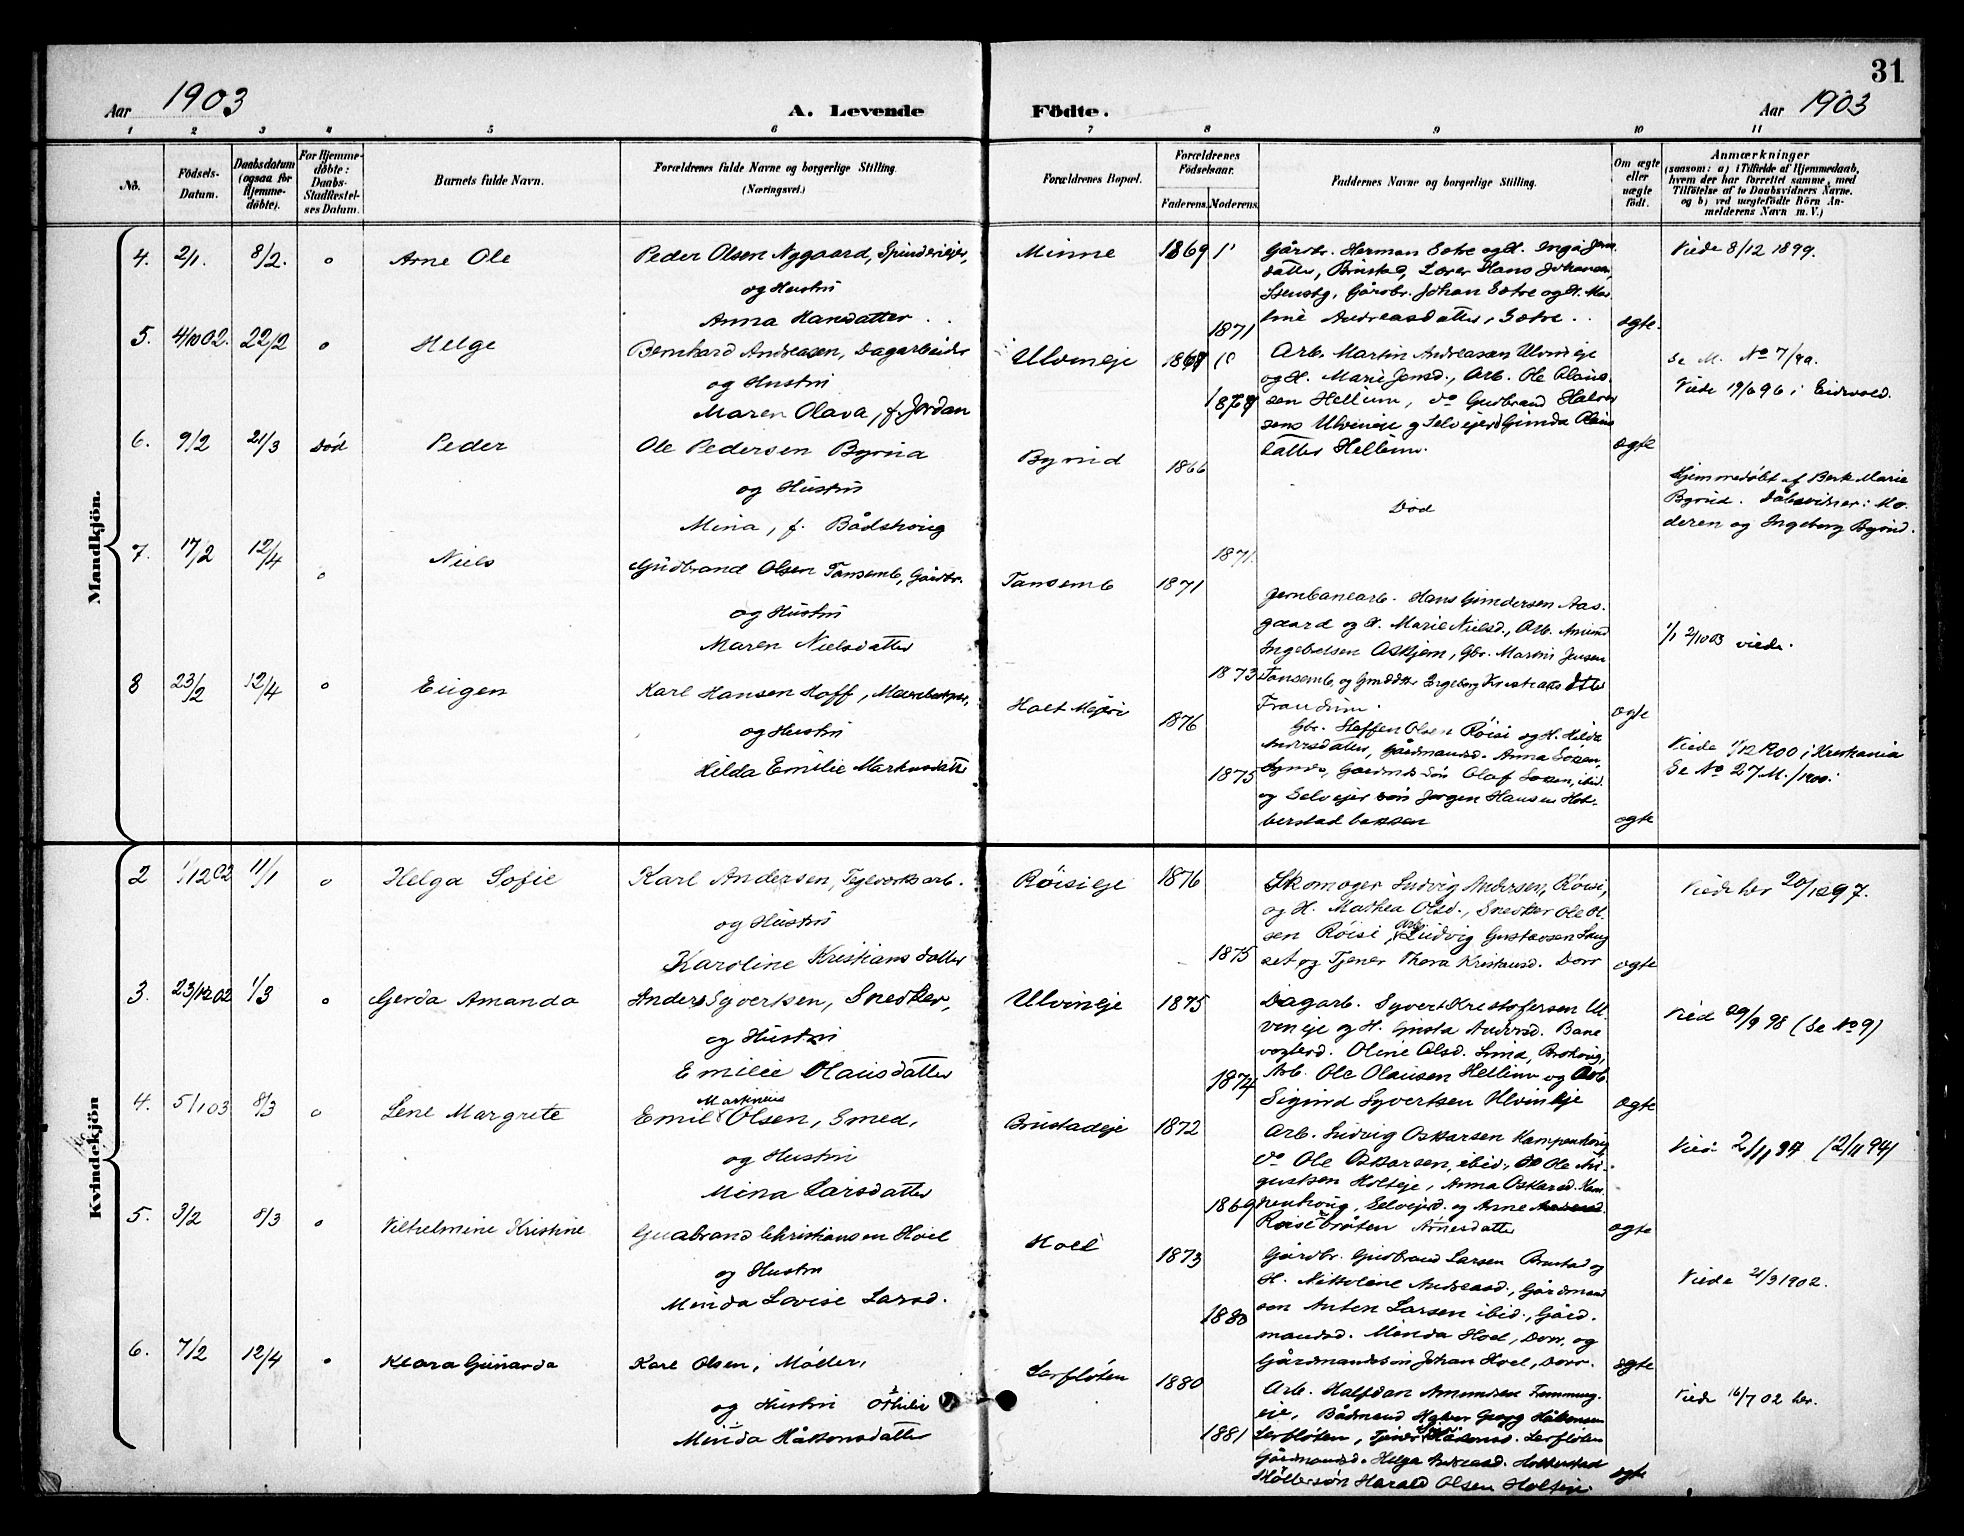 31
Aar 1903
A. Levende
Fødte.
Aar 1903
1 2 3 4 5 6 7 8 9 10 11
No.
Födsels-
Datum.
Daabsdatum
(ogsaa for
Hjemme-
døbte).
For Hjemme-
døbte:
Daabs-
Stadfæstel-
ses Datum.
Barnets fulde Navn.
Forældrenes fulde Navne og borgerlige Stilling.
(Næringsvei.)
Forældrenes Bopæl.
Forældrenes
Födselsaar.
Faderens. Moderens.
Faddernes Navne og borgerlige Stilling.
Om ægte
eller
uægte
födt.
Anmærkninger
(saasom: a) i Tilfælde af Hjemmedaab,
hvem der har forrettet samme, med
Tilföielse af to Daabsvidners Navne.
og b) ved uægtefödte Börn An-
melderens Navn m. V.)
Mandkjön.
4. 2/1. 8/2. o Arne Ole
Peder Olsen Nygaard, Spinderieier,
og Hustru
Anna Hansdatter
Minne 1869
1871
Gårdbr. Herman Sætre og H. Inga Jens
datter, Brustad, Lærer Hans Johansen,
Gårdbr. Johan Sætre og H. Mar
Andreasdatter, Sætre.
ægte.
Viede 8/12 1899.
5. 4/10 02. 22/2 o Helge
Bernhard Andreasen, Dagarbeider
og Hustru
Maren Olava, f. Jordan
Ulvineje
Arb. Martin Andreasen Ulvineje
og H. Marie Jensd., Arb. Ole Olaus-
sen Hellum, do Gudbrand Halvor
sens Ulvineje og Selvejerd Gunda Olaus
datter Hellum.
ægte
Se M. No 7/99.
Viede 19/6 96 i Eidsvold.
6. 9/2 21/3 Død Peder
Ole Pedersen Byrud
og Hustru
Mina, f. Bådshoug
Byrud 1866
1871.
Død
Hjemmedøbt af Berte Marie
Byrud. Dåbsvidner: Mo-
deren og Ingeborg Byrud.
7. 17/2 12/4 o Niels
Gudbrand Olsen Tansemb, Gårdbr.
og Hustru
Maren Nielsdatter
Tansemb 1871
1873
Jernbanearb. Hans Gundersen Aas-
gaard og H. Marie Nielsd., Arb. Amund
Ingebretsen Askjem, Gbr. Martin Jensen
Tansemb, og Ingeborg Kristians dtter
ægte
viede.
8 23/2 12/4 o Eugen
Karl Hansen Hoff,
og Hustru
Hilda Emilie Markusdatter
Holt Mejeri 1876
1875
Gbr. Steffen Olsen Røisi og H. Hilda
Andersdatter, Gårdmandsd. Anna
Gårdmds søn Olaf ibid.
og Selvejer søn Jørgen Hansen Hol-
berstad bakken
ægte
Viede 1/12 1900 i Kristiania
Se No 27 M./1900.
Kvindekjön
2 1/12 02 11/1 o Helga Sofie
Karl Andersen, Teglverksarb.
og Hustru
Karoline Kristiansdatter
Røisieje 1876
1875
Skomager Ludvig Andersen, Røisi,
og H. Mathea Olsd., Snedker Ole Ol-
sen Røisi, Ludvig Gustavsen Lang
set og Tjener Thora Kristiansd. Dorr
ægte
Viede her 20/12 97.
3. 23/12 02 1/3 o Gerda Amanda
Anders Syvertsen, Snedker,
og Hustru
Emilie Olausdatter
Ulvineje 1875
1874
Dagarb. Syvert Kristofersen Ul
vineje og H. Gusta Andersd. Bane
vogterd. Oline Olsd. Brohoug,
Arb. Ole Olausen Hellum og Arb.
Sigurd Syvertsen Ulvineje
ægte
Vied 29/9 98 (Se No 9)
4. 5/1 03 8/3 o Lene Margrete
Martinius
Emil Olsen, Smed,
og Hustru
Mina Larsdatter
Brustadeje 1872
1869
Arb. Ludvig Oskarsen Kampenhoug
do Ole Oskarsen, ibid., do Ole Au-
gustsen Holteje, Anna Oskarsd. Kam
penhoug, Selvejerd. og Arne
Røisi bråten Arnesdatter
ægte
Vied 2/11 94 (2/11 94)
5. 3/2 8/3 o Vilhelmine Kristine
Gudbrand Christiansen Hoel
og Hustru
Minda Lovise Larsd.
Hoel 1873
1880
Gårdbr. Gudbrand Larsen Brustad og
H. Nikoline Andreasd., Gårdmand
søn Anten Larsen ibid., Gård-
mandsd. Minda Hoel, Dorr, og
Gårdmandssøn Johan Hoel, Dorr.
ægte
Viede 21/3 1902.
6. 7/2 12/4 Klara Gunarda
Karl Olsen, Møller,
og Hustru Othilie
Minda Håkonsdatter
Lerfløten 1880
1881
Arb. Halfdan Amundsen
eje, Bådmand Georg Håkonsen
Lerfløten, Tjener Håkonsd. Lerfløten
Gårdmandsd. Helga Andreasd. Holkerstad
Møllersøn Harald Olsen
ægte
Viede 16/7 02 her.